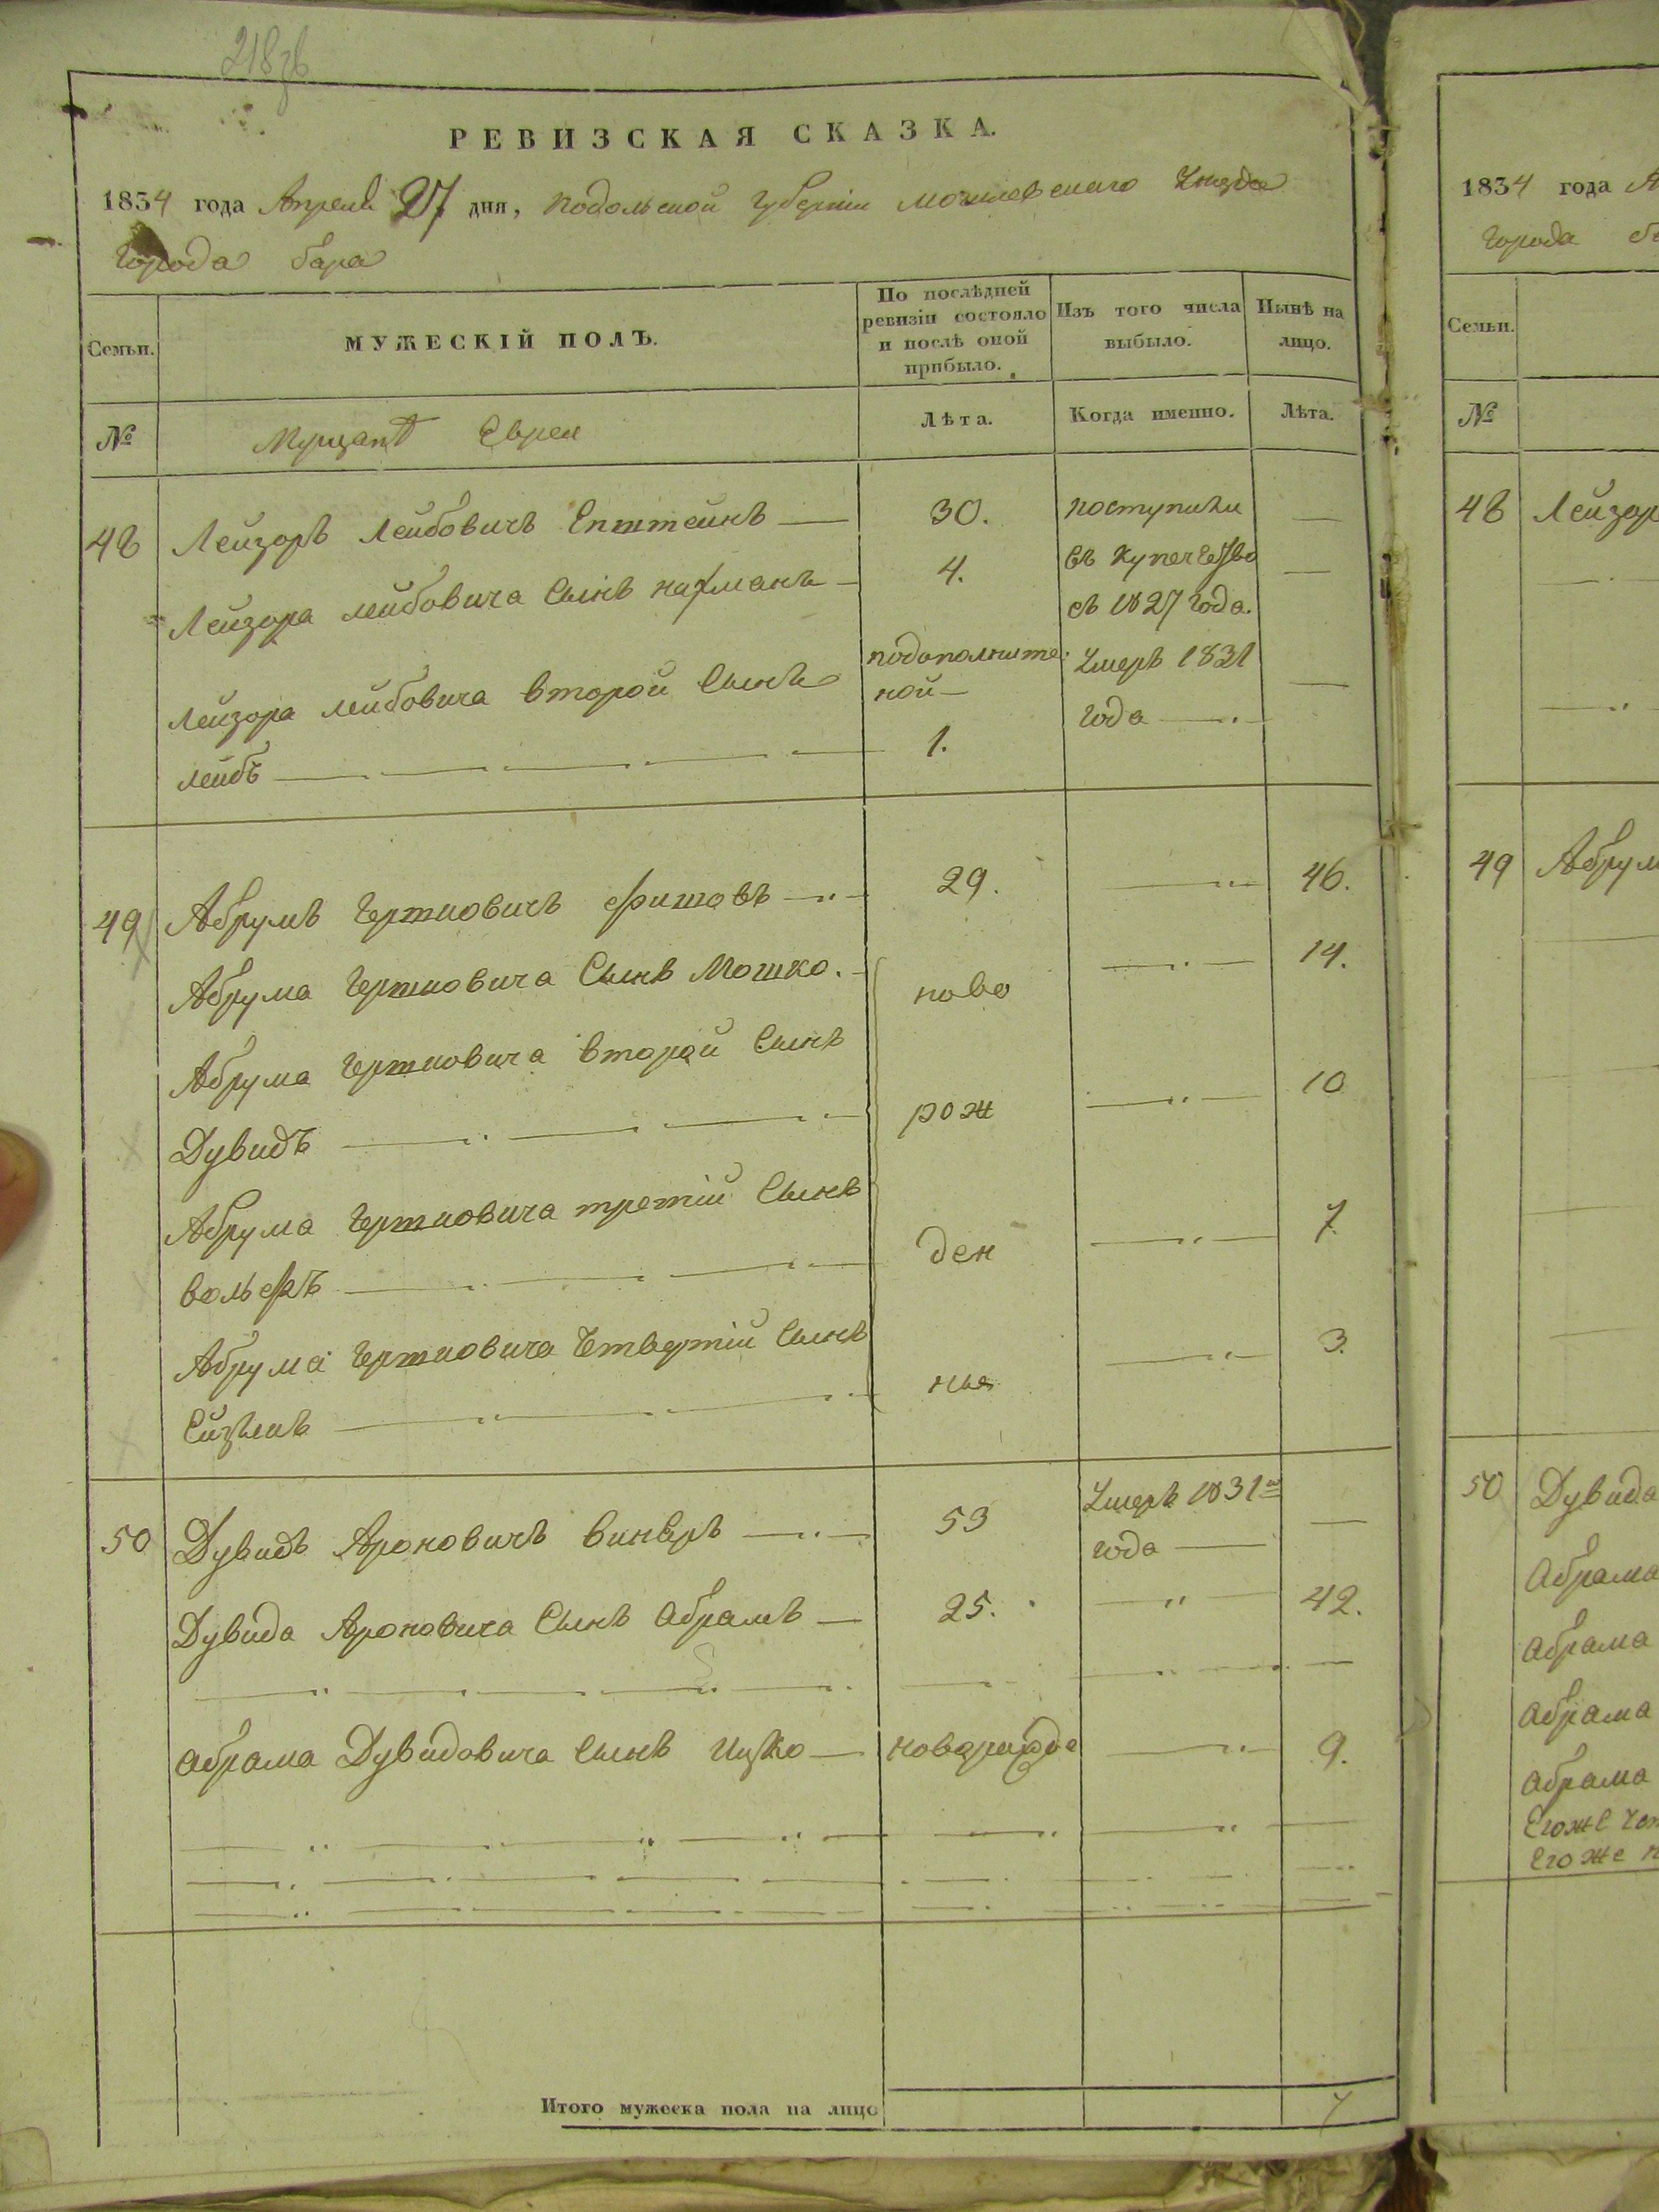 218зв
РЕВИЗСКАЯ СКАЗКА.
1834 года Апреля 27 дня, Подольской Губернии Могилевского Уезда
Города Бара
Семьи. МУЖЕСКІЙ ПОЛЪ. По послѣдней ревизіи состояло и послѣ оной прибыло. Изъ того числа выбыло. Нынѣ на лицо.
№ Евреи Лѣта. Когда именно. Лѣта.
48 Лейзоръ Лейбовичъ Епштейнъ 30. поступили —
Лейзора Лейбовича Сынъ Нахманъ 4. въ купечество —
съ 1827 года.
Лейзора Лейбовича второй Сынъ подополните: Умеръ 1831 —
ной— года
Лейбъ 1.
49 Абрумъ Гершковичъ 29. — 46.
Абрума Гершковича Сынъ Мошко. ново — 14.
Абрума Гершковича второй Сынъ
Дувидъ рож — 10
Абрума Гершковича третій Сынъ
Вольфъ ден — 7.
Абрума Гершковича Четвертій Сынъ
ныя — 3.
50 Дувидъ Ароновичъ Винеръ 53 Умеръ 1831го —
года
Дувида Ароновича Сынъ Абрамъ — 25. — 42.
Абрама Дувидовича Сынъ Ицко — — 9.
Итого мужеска пола на лицо 7
1834 года
Города
Семьи.
№
48 Лейзор
49 Абрум
50 Дувида
Абрама
Абрама
Абрама
Абрама
Егоже
Егоже